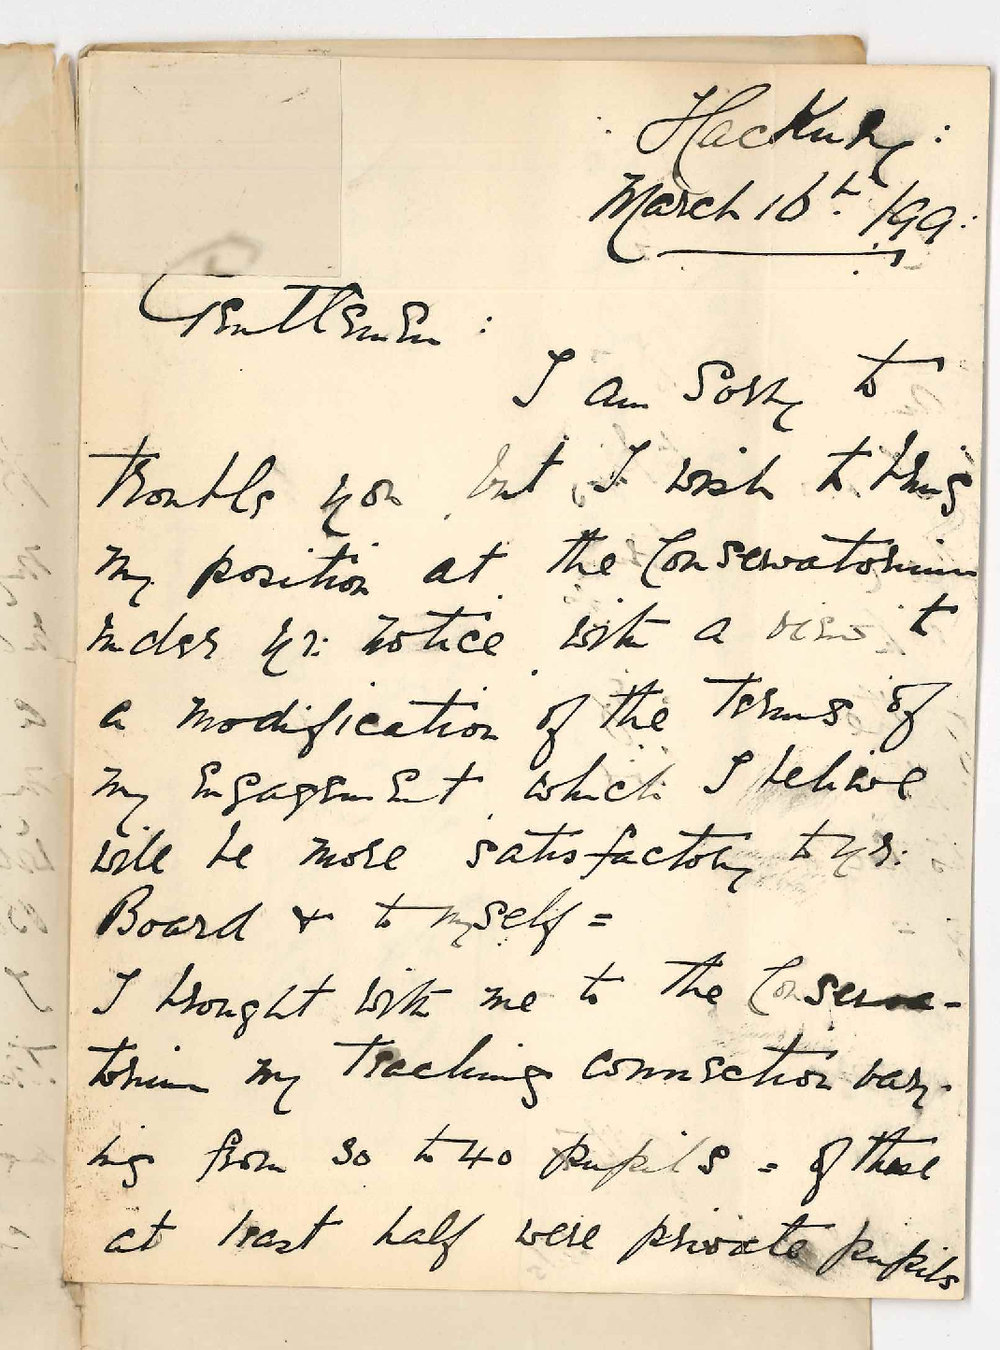 Hackney:
March 16th. /99:
Gentlemen:
I am sorry to
trouble you but I wish to bring
my position at the Conservatorium
under yr: notice with a view to
a modification of the terms of
my engagement which I believe
will be more satisfactory to yr:
Board & to myself =
I brought with me to the Conserva-
torium my teaching connection vary-
ing from 30 to 40 pupils = of these
at least half were private pupils